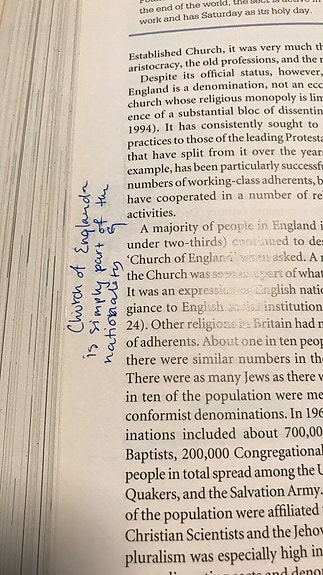 the end of the world, the sect is active in
work and has Saturday as its holy day.
Established Church, it was very much th
aristocracy, the old professions, and the r
Despite its official status, however,
England is a denomination, not an ecc
church whose religious monopoly is lim
ence of a substantial bloc of dissentin
1994). It has consistently sought to
practices to those of the leading Protesta
that have split from it over the year
example, has been particularly successfu
numbers of working-class adherents, b
have cooperated in a number of re
activities.
A majority of people in England i
under two-thirds) continued to des
‘Church of England’ when asked. A n
the Church was seen as part of what
It was an expression of English natio
giance to English social institution
24). Other religions in Britain had n
of adherents. About one in ten peop
there were similar numbers in the
There were as many Jews as there w
in ten of the population were me
conformist denominations. In 196
inations included about 700,00
Baptists, 200,000 Congregational
people in total spread among the U
Quakers, and the Salvation Army.
of the population were affiliated
Christian Scientists and the Jehov
pluralism was especially high in
Church of England
is simply part of the
nationality